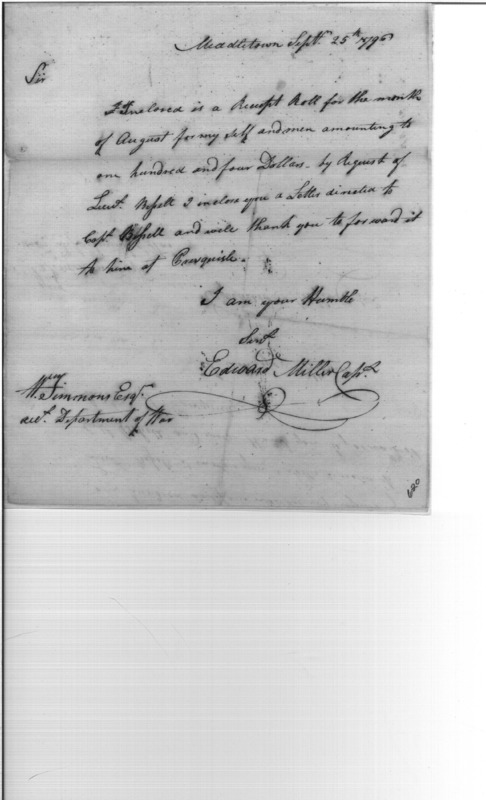 Middletown Sept. 25th 1796
Sir
Inclosed is a Receipt Roll for the month
of August for my Self and men amounting to
one hundred and four Dollars. by Request of
Lieut. Bissell I inclose you a Letter directed to
Capt. Bissell and will thank you to forward it
to him at
I am your Humble
Servt
Edward Miller Capt.
Wm Simmons Esqr.
acct. Department of War
620